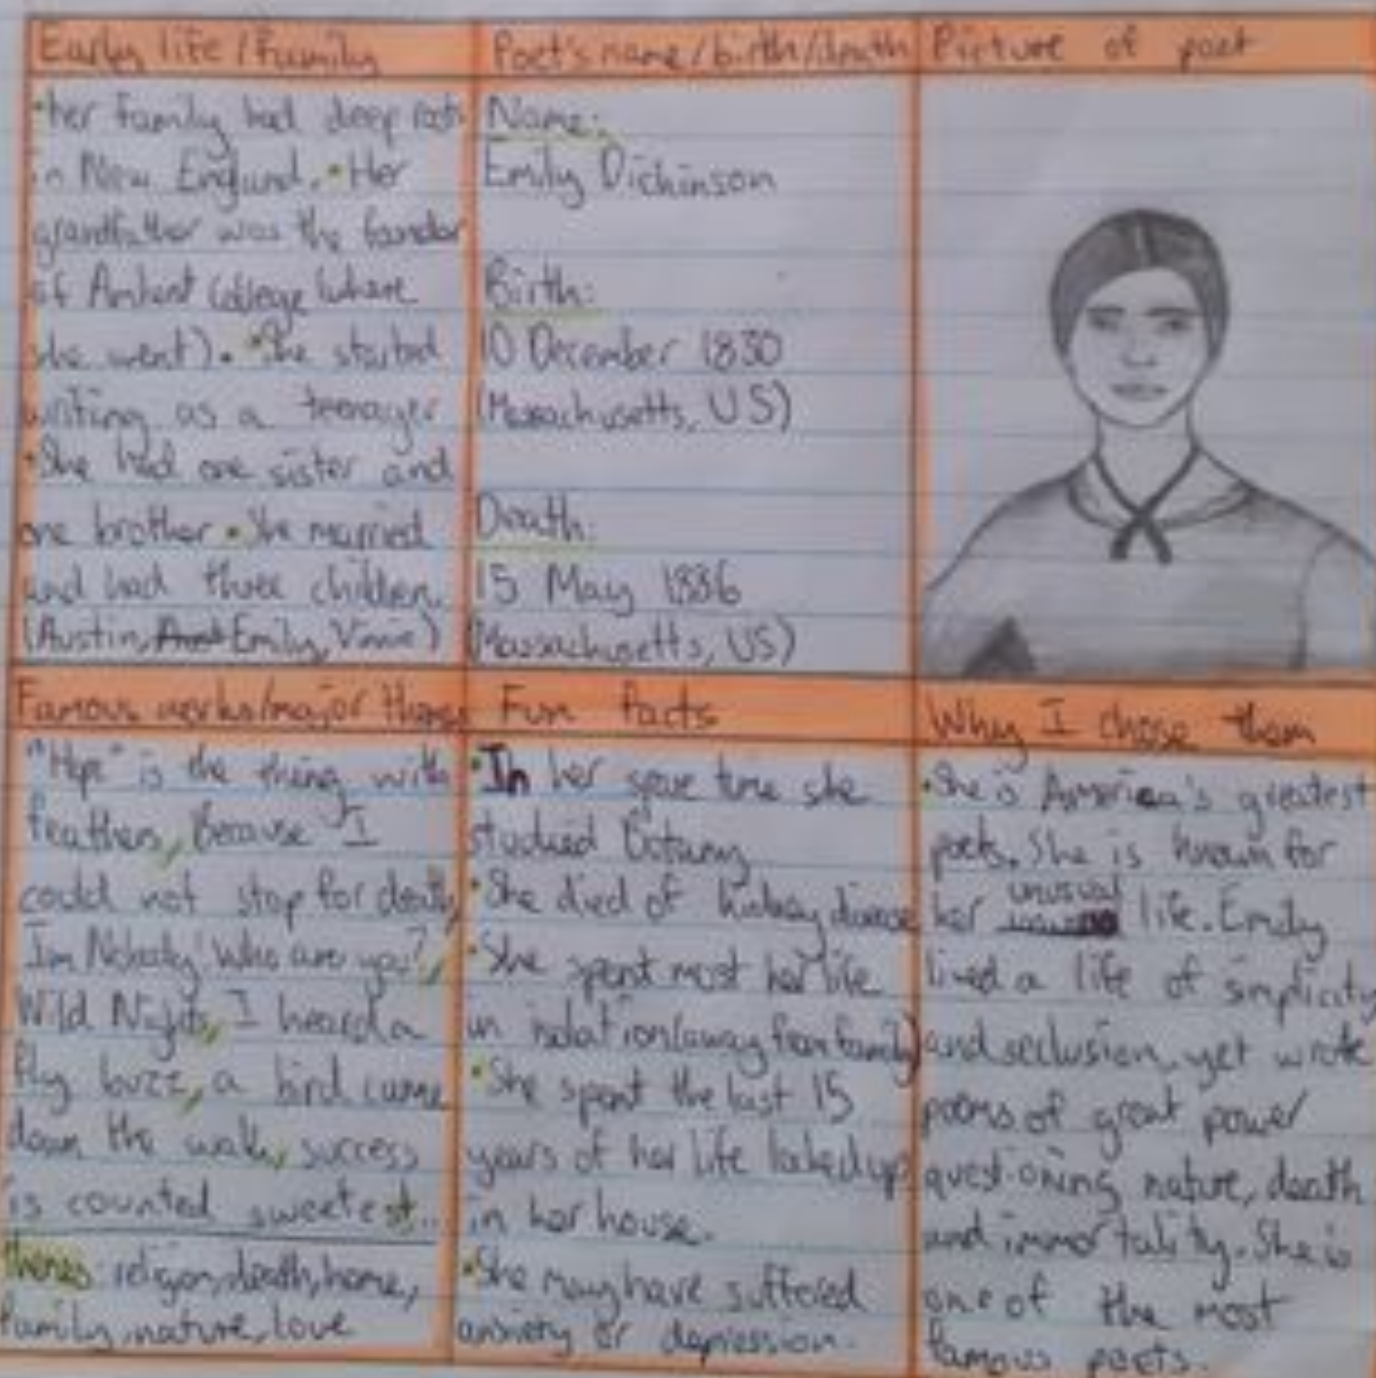 Early life / Family
•her family had deep roots
in New England. •Her
grandfather was the founder
of Amherst College (where
she went). •She started
writing as a teenager
•She had one sister and
one brother •She married
and had three children.
(Austin, Emily, Vinnie)
Poet's name / birth / death
Name:
Emily Dickinson
Birth:
10 December 1830
(Massachusetts, US)
Death:
15 May 1886
(Massachusetts, US)
Picture of poet
Famous works/major themes
"Hope" is the thing with
feathers, Because I
could not stop for death,
I'm Nobody! Who are you?,
Wild Nights, I heard a
fly buzz, a bird came
down the walk, success
is counted sweetest..
themes: religion, death, home,
family, nature, love
Fun facts
•In her spare time she
studied Botany
•She died of kidney disease
•She spent most her life
in isolation (away from family)
•She spent the last 15
years of her life locked up
in her house.
•She may have suffered
anxiety or depression.
Why I chose them
•She is America's greatest
poets. She is known for
her unusual life. Emily
lived a life of simplicity
and seclusion, yet wrote
poems of great power
questioning nature, death
and immortality. She is
one of the most
famous poets.